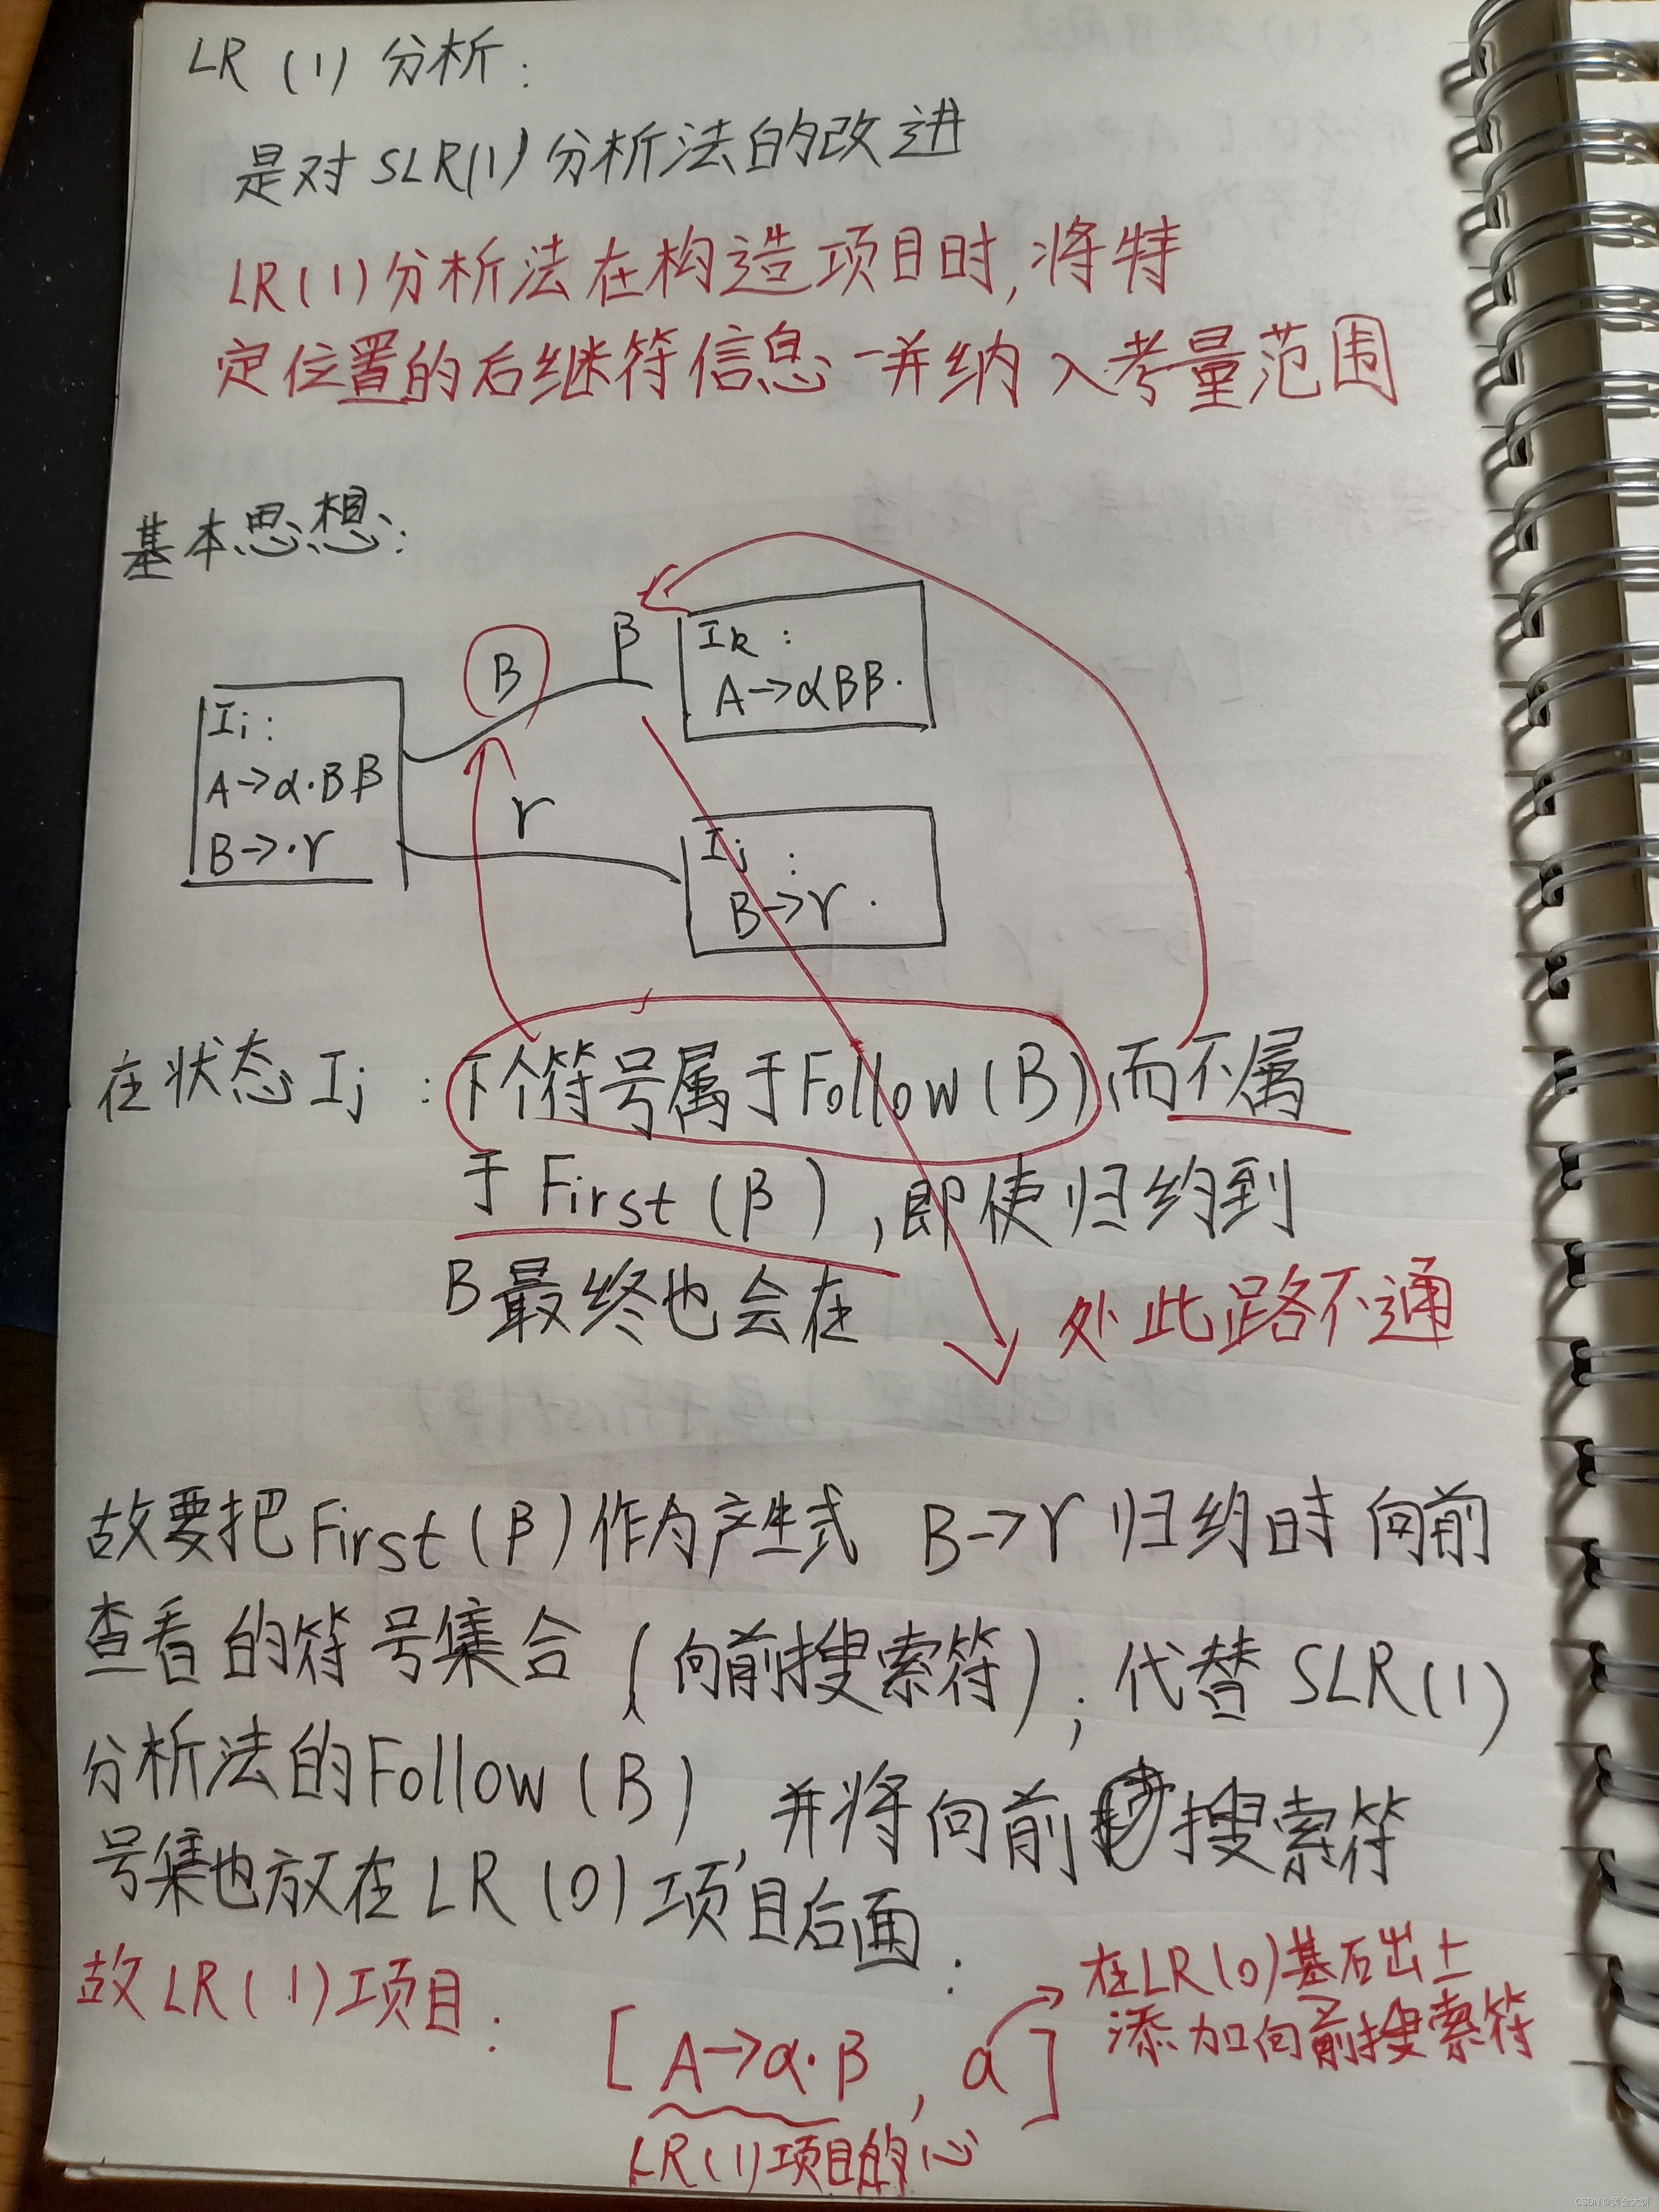 LR (1) 分析:
是对 SLR(1) 分析法的改进
LR(1)分析法在构造项目时,将特
定位置的后继符信息一并纳入考量范围
基本思想:
B
β
Ik :
A→αBβ·
Ii:
A→α·Bβ
B→·γ
γ
Ij :
B→γ·
在状态 Ij : 下个符号属于Follow(B),而不属
于 First (β) ,即使归约到
B最终也会在
处此路不通
故要把First(β)作为产生式 B→γ 归约时向前
查看的符号集合 (向前搜索符), 代替 SLR(1)
分析法的Follow(B) ,并将向前搜索符
号集也放在LR(0)项目后面:
故LR(1)项目:
[A→α·β , a]
在LR(0)基础上
添加向前搜索符
LR(1)项目的心
CSDN @黄金大饼